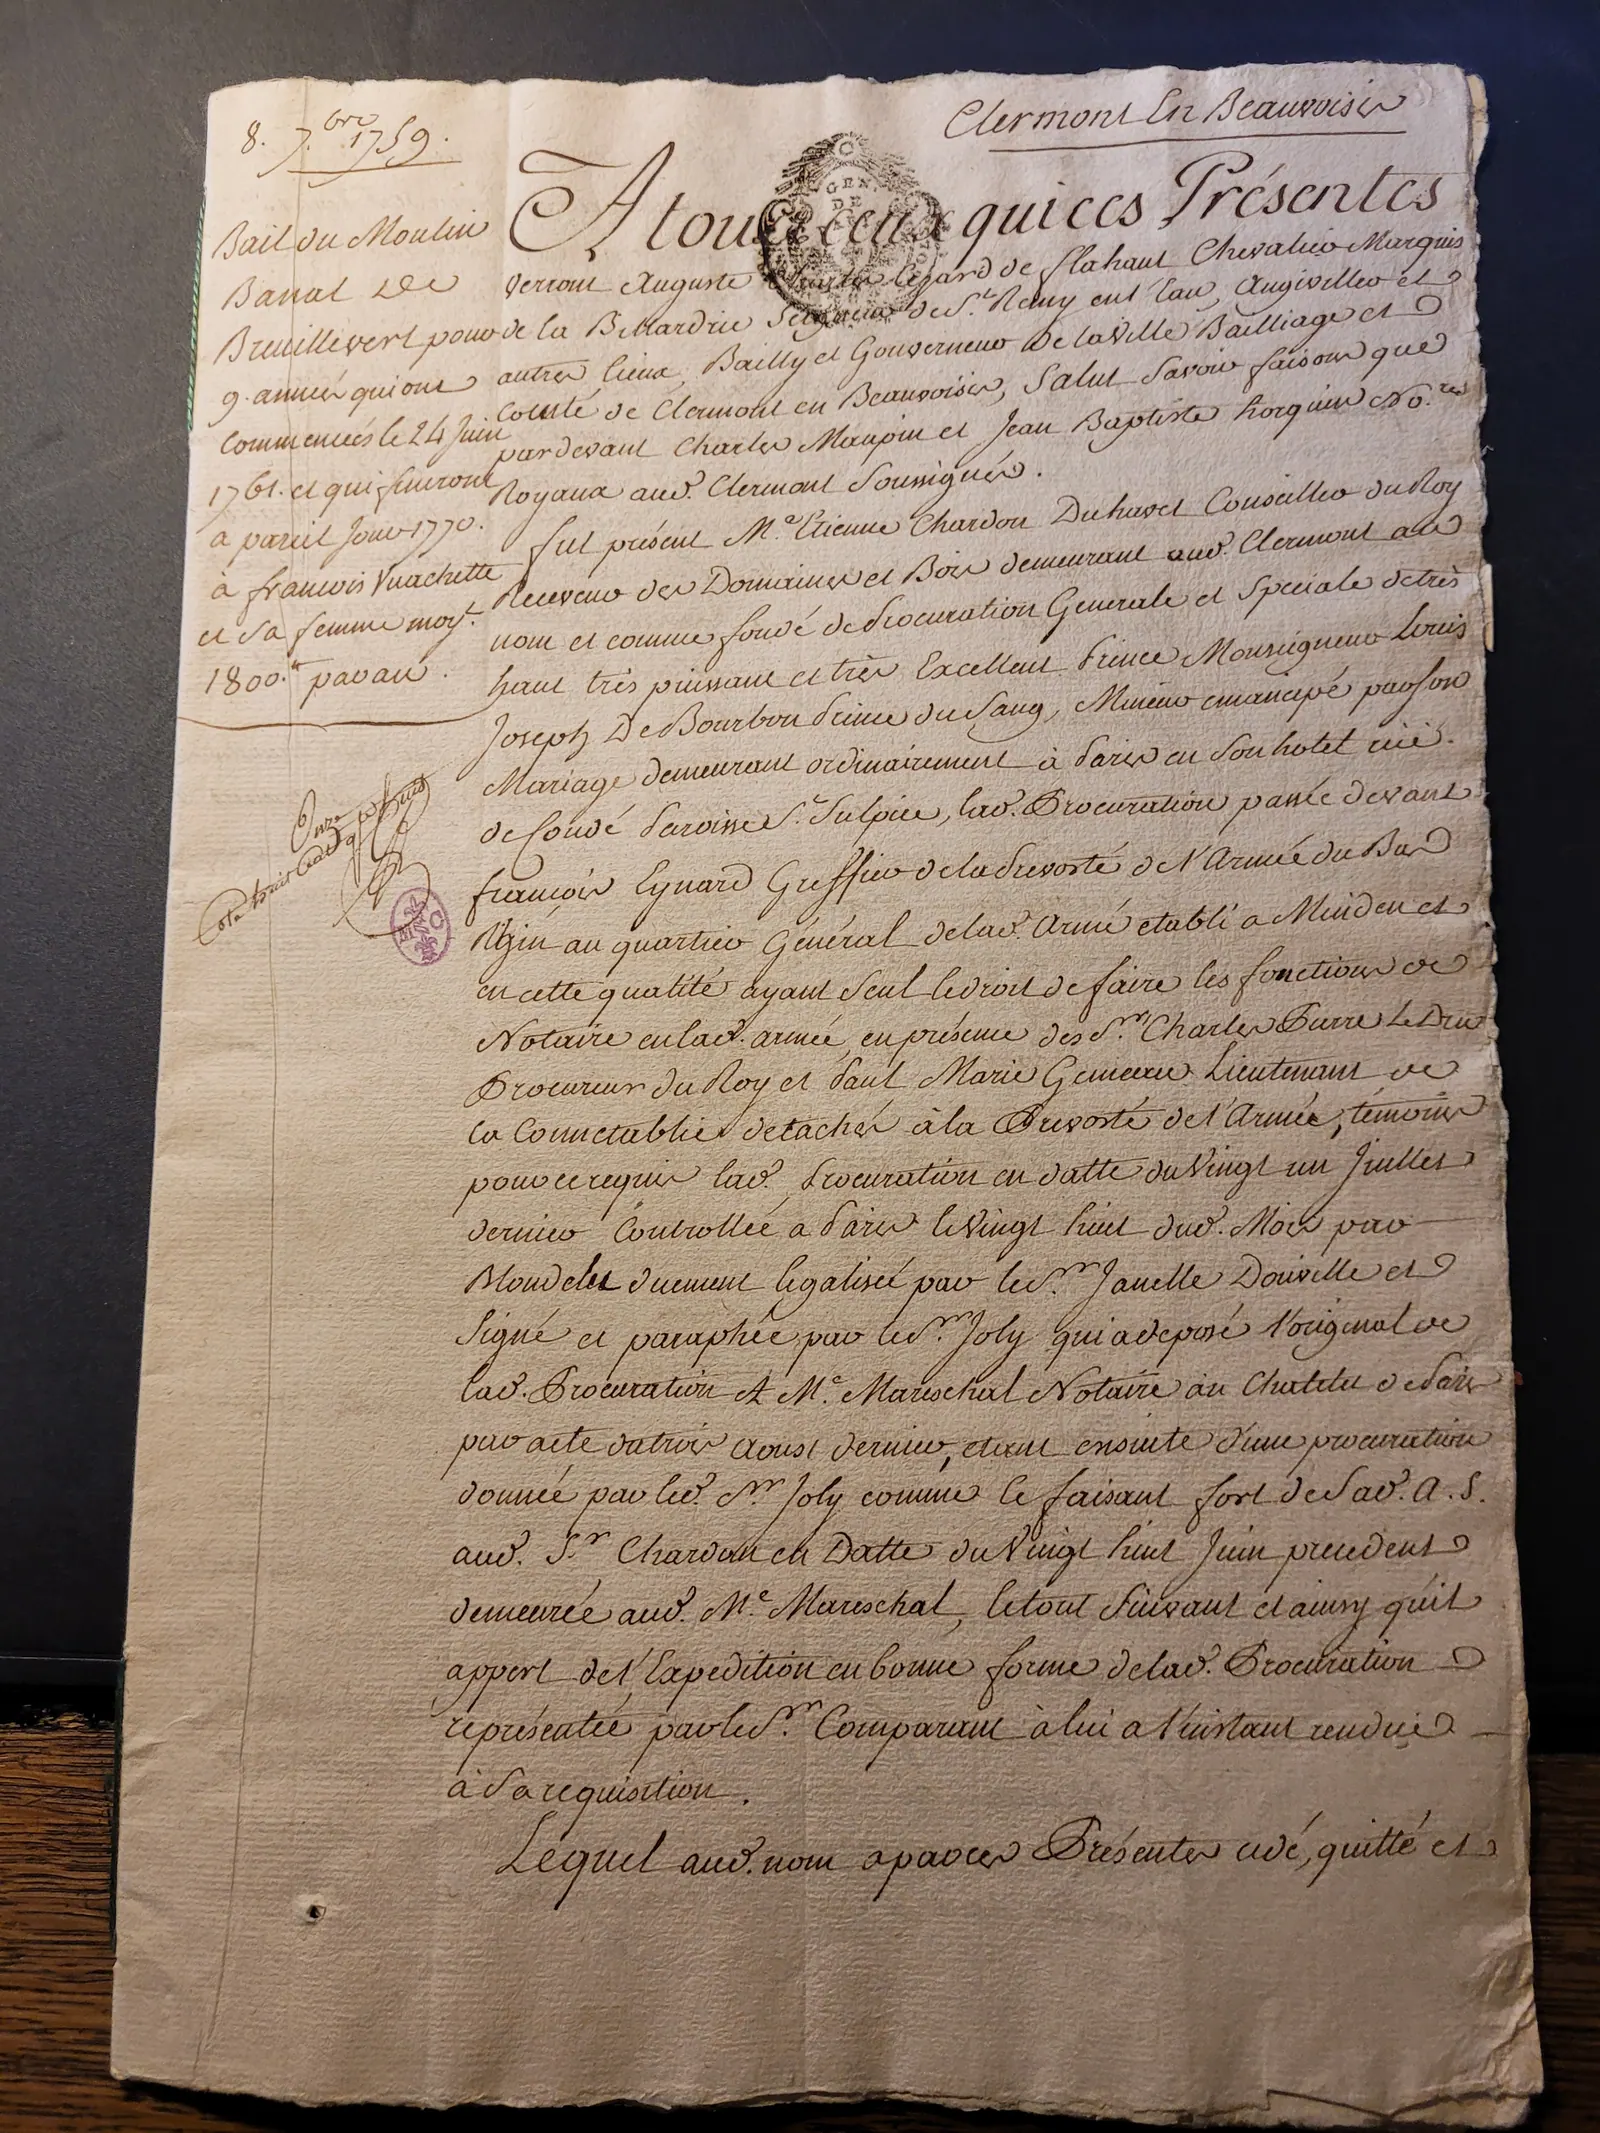 Clermont En Beauvoisis
8. 7.bre 1759.
Bail du Moulin
Banal De
Breuillevert pour
9. années qui ont
Commencées le 24 Juin
1761. et qui finiront
a pareil Jour 1770.
à francois Vuachette
et Sa femme moy.t
1800.tt par an.
A tous ceux qui ces Présentes
verront Auguste Cézard de flahaut Chevalier Marquis
de la Billardrie Seigneur de St. Remy en l'Eau, Angiviller et
autres lieux, Bailly et Gouverneur de la Ville Bailliage et
Comté de Clermont en Beauvoisis, Salut Savoir faisons que
pardevant Charles Maupin et Jean Baptiste horquin No.res
Royaux aud. Clermont Soussignés.
fut présent M.e Etienne Chardon Duhavet Conseiller du Roy
Receveur des Domaines et Bois demeurant aud. Clermont au
nom et comme fondé de Procuration Generale et Speciale de très
haut très puissant et très Excellent Prince Monseigneur Louis
Joseph De Bourbon Prince du Sang, Mineur emancipé par son
Mariage demeurant ordinairement à Paris en Son hotel rüe.
de Condé Paroisse St. Sulpice, lad. Procuration passée devant
françois Eynard Greffier de la Prevosté de l'Armée du Bas
Rhin au quartier Général de lad. Armé etabli a Minden et
en cette qualité ayant Seul le droit de faire les fonctions de
Notaire en lad. armée, en présence des Srs. Charles Pierre LeDru
Procureur du Roy et Paul Marie Lieutenant de
La Connetablie detachés à la Prevosté de l'Armée, témoins
pour ce requis lad. Procuration en datte du Vingt un Juillet
dernier Controllée a Paris le Vingt huit dud. Mois par
Blondelet duement legalisée par le Sr. Janelle Douville et
Signé et paraphée par le Sr. Joly qui a deposé l'original de
lad. Procuration A M.e Mareschal Notaire au Chatelet de Paris
par acte du trois Aoust dernier, etant ensuite d'une procuration
donnée par led. Sr. Joly comme le faisant fort de Sad. A. S.
aud. Sr. Chardon en Datte du Vingt huit Juin precedent
demeurée aud. M.e Mareschal, le tout Suivant et ainsy qu'il
appert de l'Expedition en bonne forme de lad. Procuration
représentée par le Sr. Comparant à lui a l'instant rendüe
à Sa requisition.
Lequel aud. nom a par ces Présentes cedé, quitté et